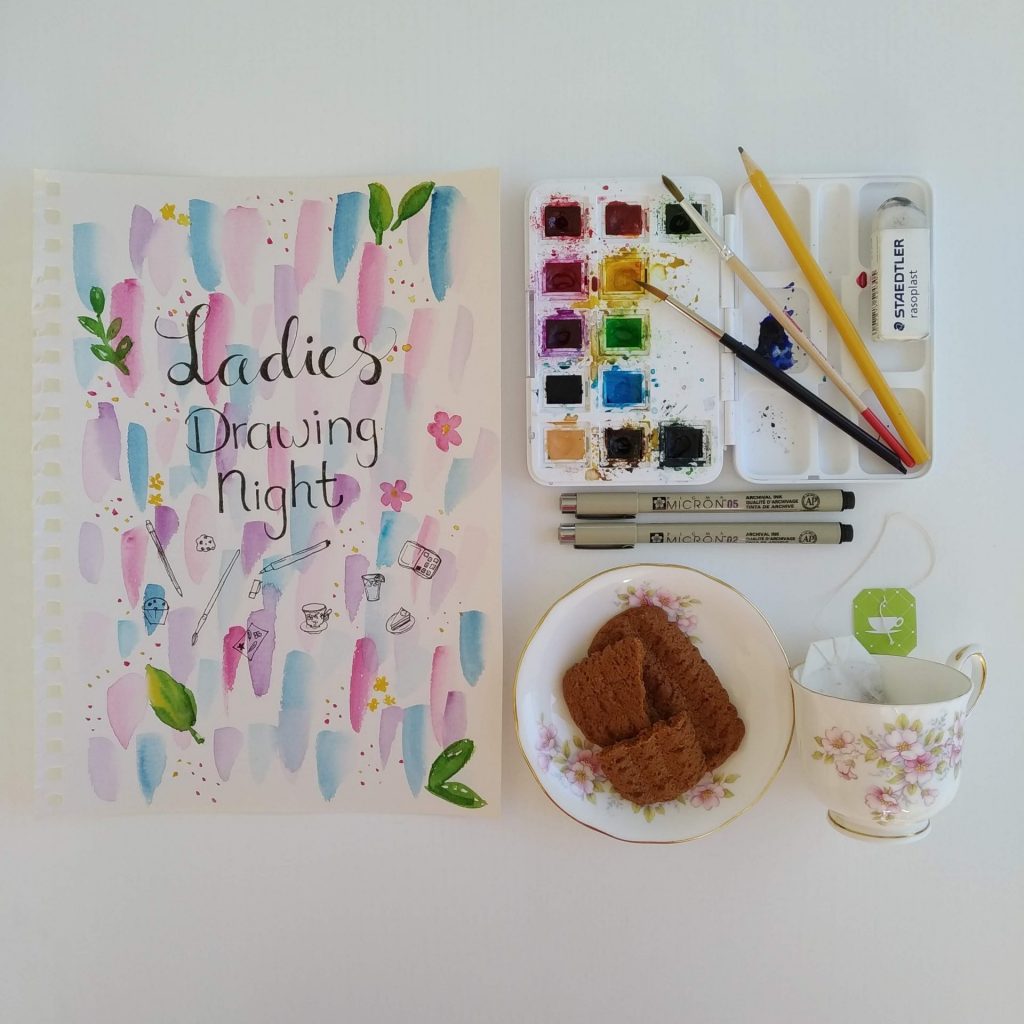 Ladies
Drawing
Night
STAEDTLER
rasoplast
MICRON 05
ARCHIVAL INK
QUALITÉ D'ARCHIVAGE
TINTA DE ARCHIVE
AP
MICRON 02
ARCHIVAL INK
QUALITÉ D'ARCHIVAGE
TINTA DE ARCHIVE
AP